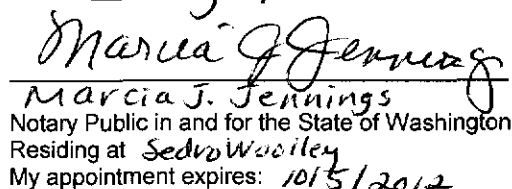 Marcia J Jennings
Marcia J. Jennings
Notary Public in and for the State of Washington
Residing at Sedro Woolley
My appointment expires: 10/5/2012